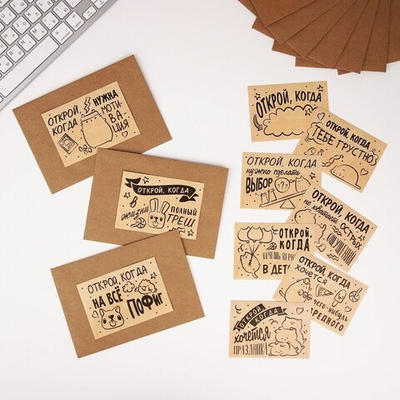 ОТКРОЙ,
КОГДА
НУЖНА
МОТИ-
ВА-
ЦИЯ
ОТКРОЙ, КОГДА
В
ЖИЗНИ
ПОЛНЫЙ
ТРЕШ
ОТКРОЙ, КОГДА
НА ВСЁ
ПОФИГ
ОТКРОЙ, КОГДА
ОТКРОЙ, КОГДА
ТЕБЕ ГРУСТНО
ОТКРОЙ, КОГДА
НУЖНО СДЕЛАТЬ
ВЫБОР
ОТКРОЙ, КОГДА
НЕ ХВАТАЕТ
ОТКРОЙ,
КОГДА
ХОЧЕШЬ
В ДЕТ
ОТКРОЙ, КОГДА
ХОЧЕТСЯ
ЧЕГО-НИБУДЬ
ВРЕДНОГО
ОТКРОЙ,
КОГДА
ХОЧЕТСЯ
ПРАЗДНИКА